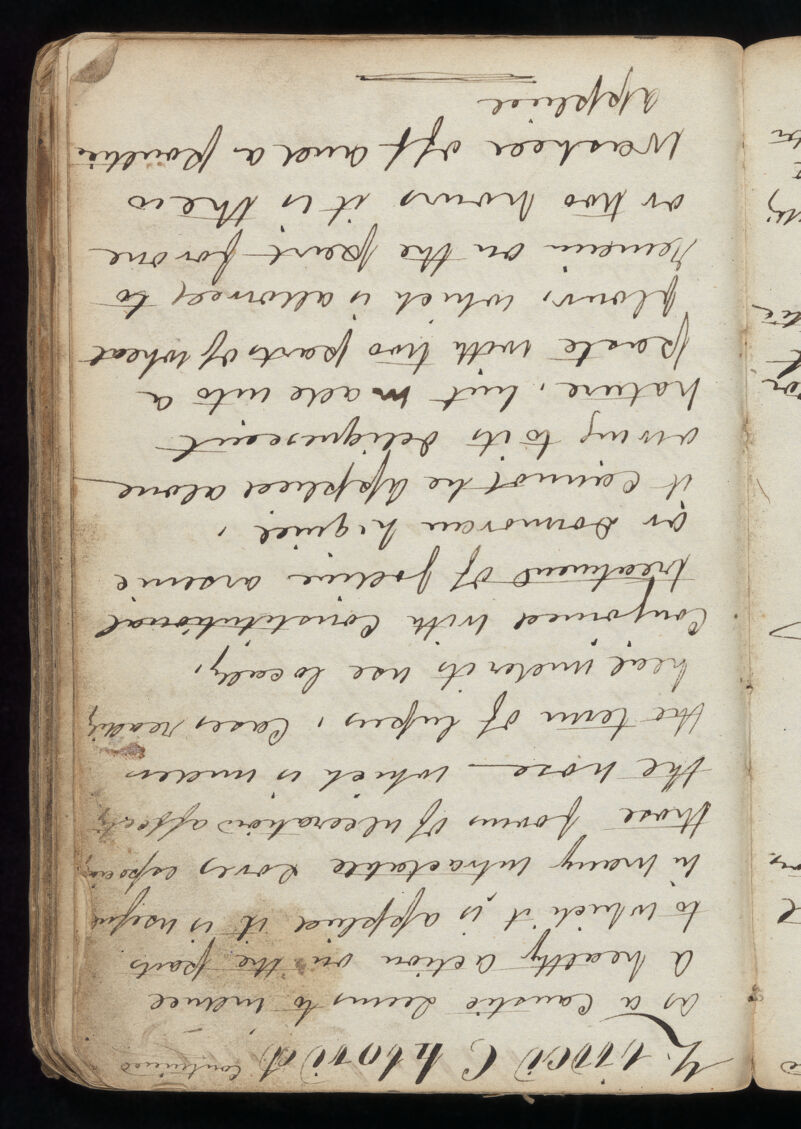 Zinci Chlorid continued
as a Caustic seems to induce
a healthy action in the parts
to which it is applied it is useful
in many intractable sores especially
those forms of ulceration affecting
the nose which is under
the term of lupus, Cases readily
heal under its use locally,
Conjoined with Constitutional
treatment of Iodine arsenic
or Donovan liquid,
it Cannot be applied alone
owing to its deliquescent
nature, but made into a
paste with two parts of wheat
flour, which is allowed to
remain on the part for one
or two hours it is then
washed off and a poultice
applied